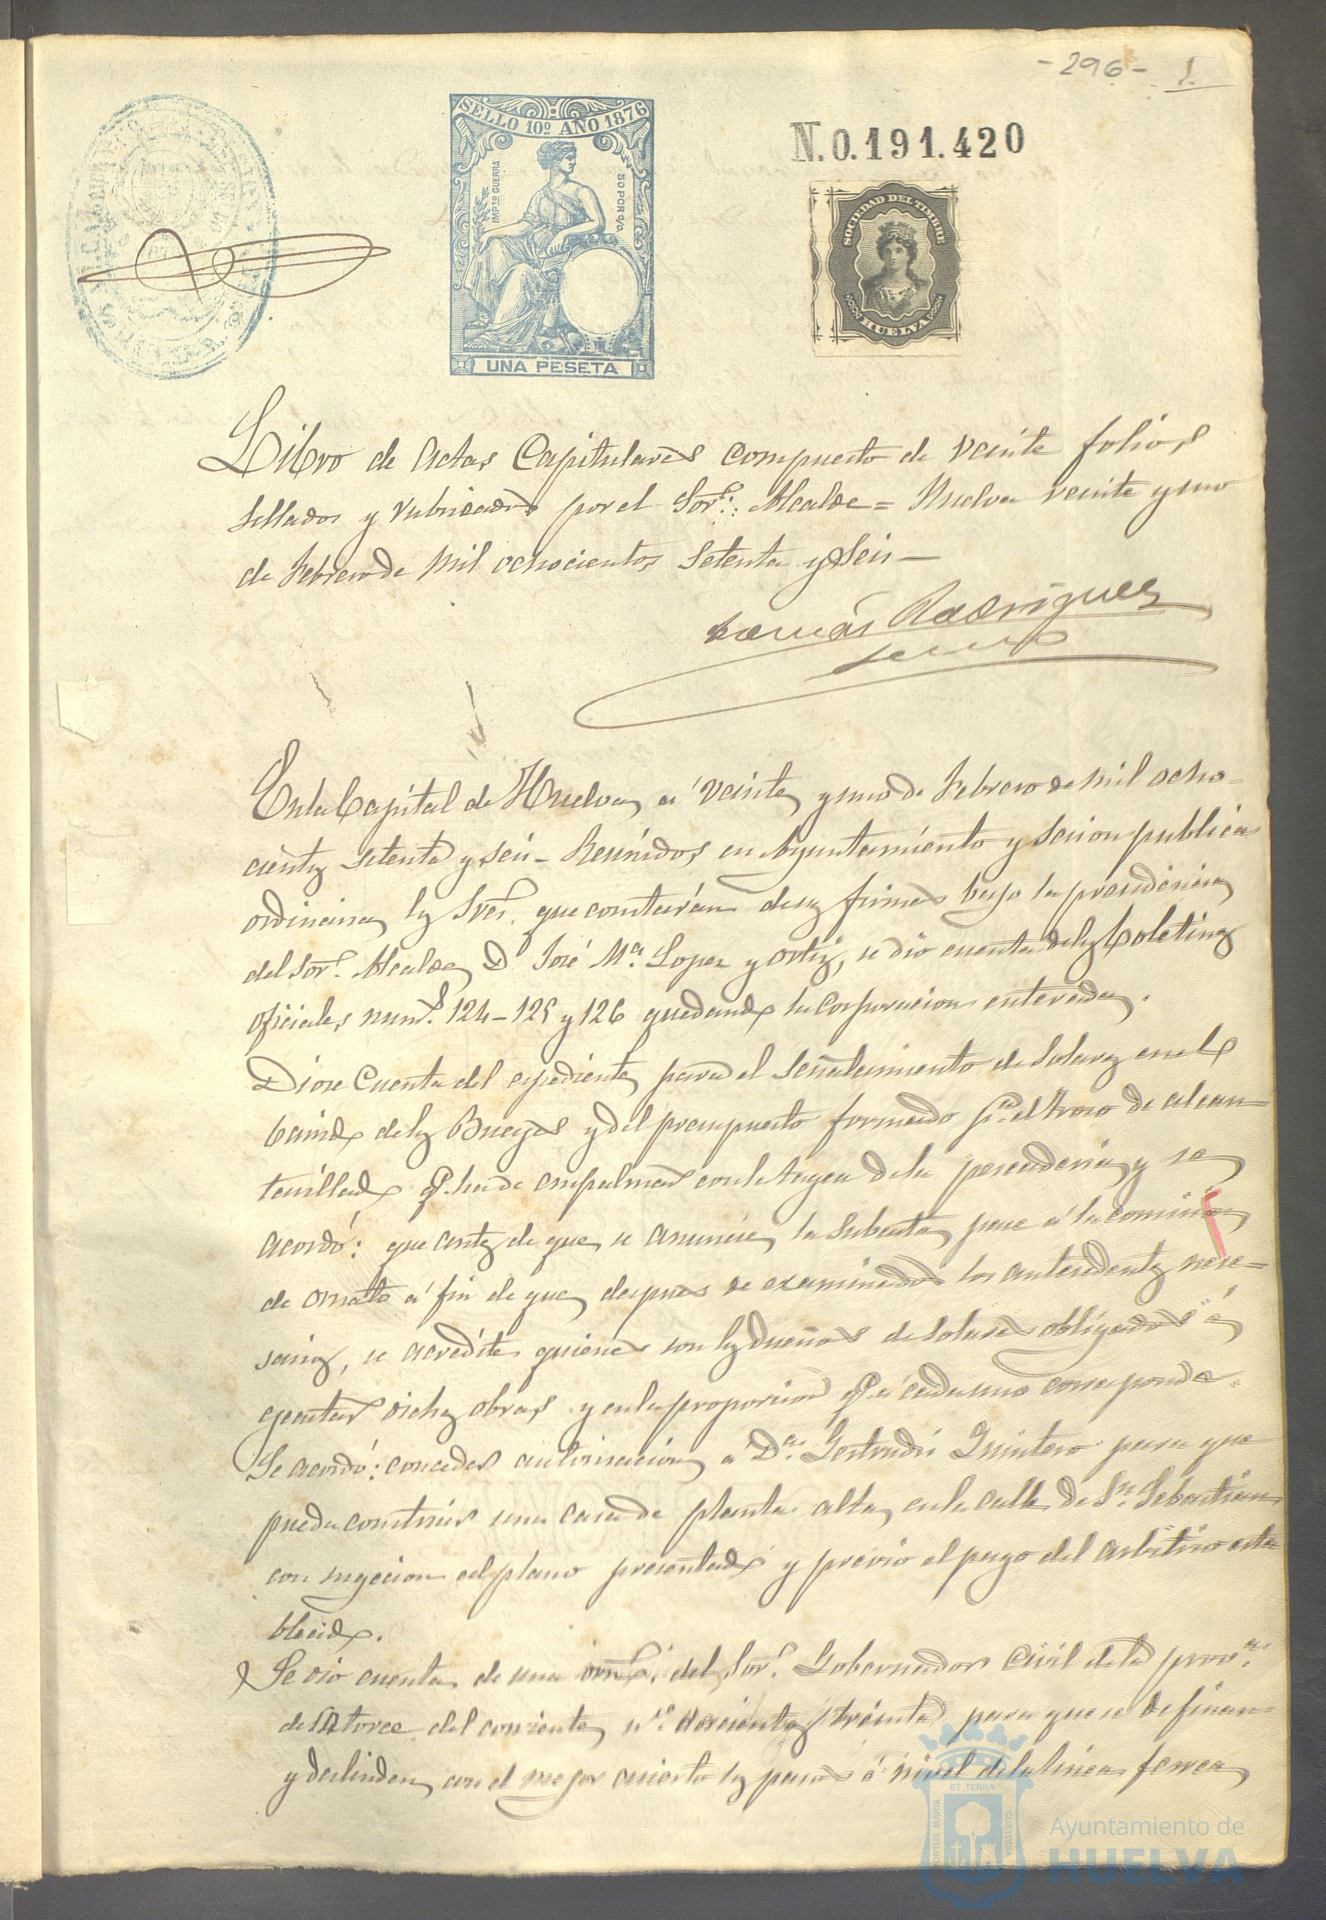 -296- 1.
SELLO 10º AÑO 1876
IMPTO GUERRA
50 POR 0/0
UNA PESETA
N.0.191.420
SOCIEDAD DEL TIMBRE
HUELVA
Libro de actas Capitulares compuesto de veinte folios
sellados y rubricados por el Sor. Alcalde = Huelva veinte y uno
de Febrero de mil ochocientos setenta y seis —
Tomás Rodriguez
En la Capital de Huelva, a veinte y uno de Febrero de mil ocho-
cientos setenta y seis — Reunidos en Ayuntamiento y sesion publica
ordinaria los Sres. que constarán de sus firmas bajo la presidencia
del Sor. Alcalde D José Mª. Lopez y Ortiz, se dio cuenta de los boletines
oficiales nums. 124 - 125 y 126 quedando la corporacion enterada.
Diose cuenta del expediente para el señalamiento de solares en el
camino de los Bueyes y del presupuesto formado pª. el trozo de alcan-
tarillado q. ha de empalmar con la tagea de la pescaderia y se
acordó: que antes de que se anuncie la subasta pase á la comision
de ornato á fin de que despues de examinados los antesedentes nese-
sarios, se acredite quienes son los dueños de solares obligados á
ejecutar dichas obras y en la proporcion q. á cada uno corresponde.
Se acordó: conceder autorisacion á Dª. Gertrudis Quintero para que
pueda construir una casa de planta alta en la calle de Sn. Sebastian
con sugecion al plano presentado y previo el pago del arbitrio esta
blecido.
Se dio cuenta de una orn. del Sor. Gobernador Civil de la provª.
de catorce del corriente nº. doscientos treinta para que se definan
y deslinden con el mejor acierto los pasos á nivel de la linea ferrea
ET TERRA
PORTUS MARIS
CUSTODIA
Ayuntamiento de
HUELVA